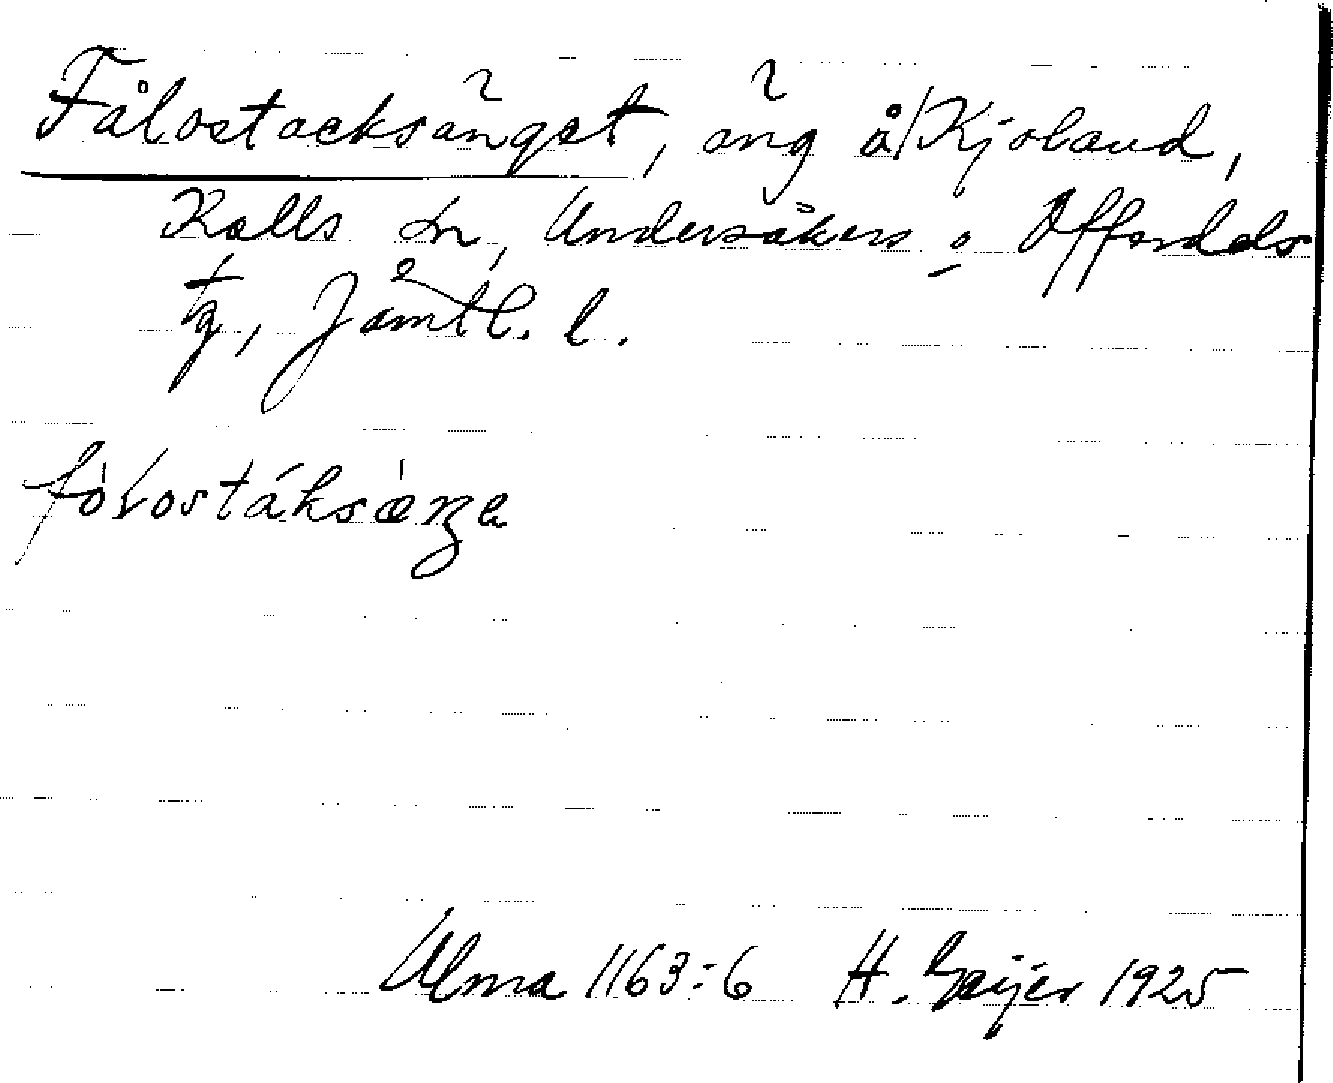 Fålostacksänget, äng å Kjoland,
Kalls sn, Undersåkers o Offerdals
tg, Jämtl. l.
fólostáksæŋa
Ulma 1163:6 H. Geijer 1925